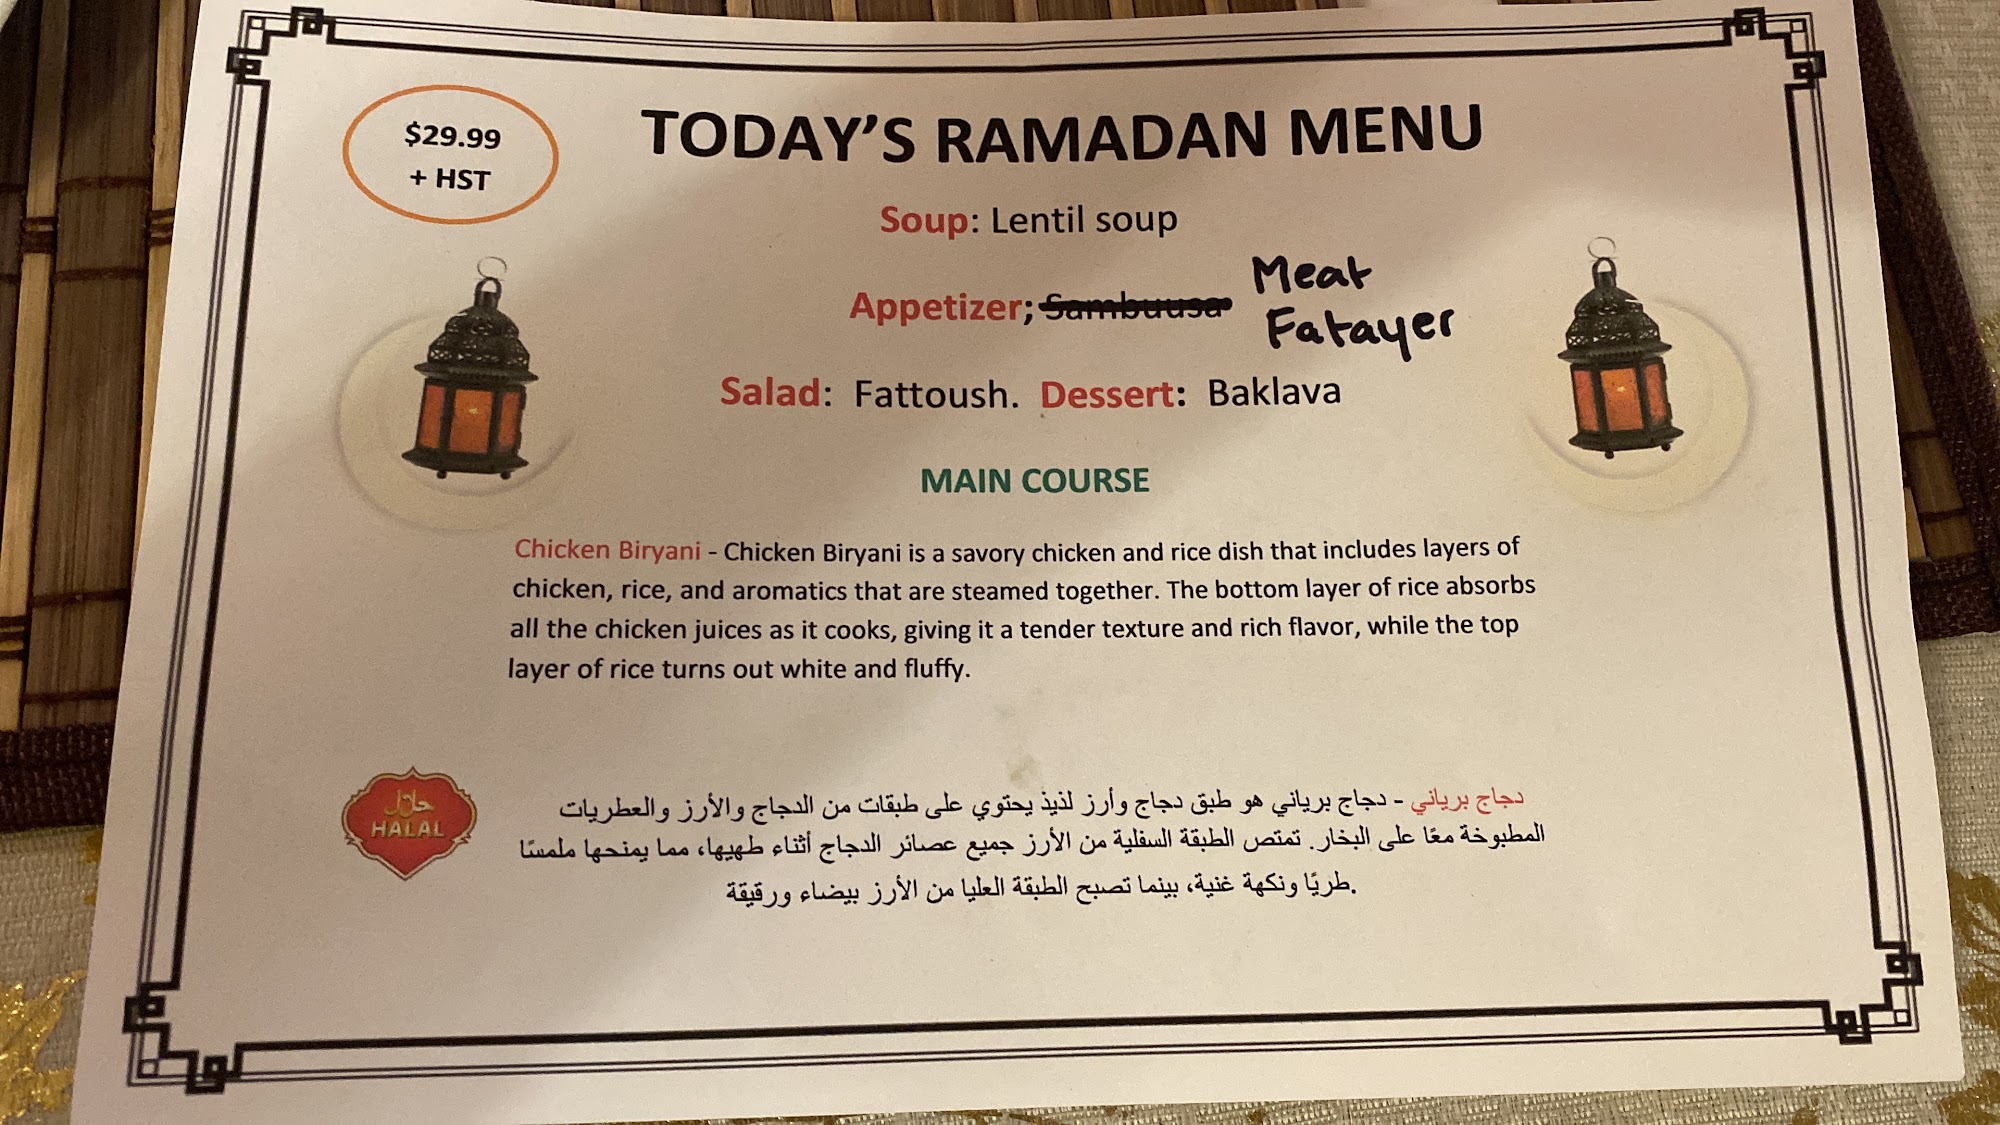 $29.99
+ HST
TODAY'S RAMADAN MENU
Soup: Lentil soup
Appetizer; Sambuusa Meat
Fatayer
Salad: Fattoush. Dessert: Baklava
MAIN COURSE
Chicken Biryani - Chicken Biryani is a savory chicken and rice dish that includes layers of
chicken, rice, and aromatics that are steamed together. The bottom layer of rice absorbs
all the chicken juices as it cooks, giving it a tender texture and rich flavor, while the top
layer of rice turns out white and fluffy.
حلال
HALAL
دجاج برياني - دجاج برياني هو طبق دجاج وأرز لذيذ يحتوي على طبقات من الدجاج والأرز والعطريات
المطبوخة معًا على البخار. تمتص الطبقة السفلية من الأرز جميع عصائر الدجاج أثناء طهيها، مما يمنحها ملمسًا
.طريًا ونكهة غنية، بينما تصبح الطبقة العليا من الأرز بيضاء ورقيقة